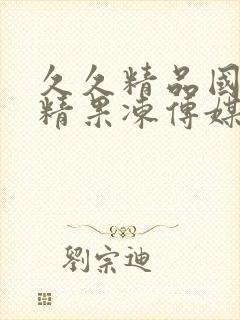 久久精品國
精果凍傳媒
劉宗迪